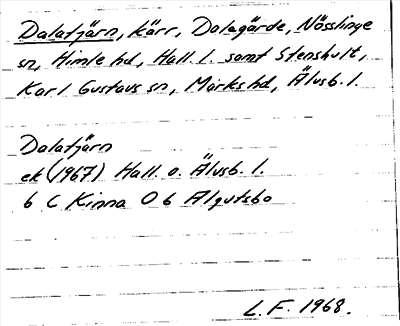 Dalatjärn, kärr, Dalagärde, Nösslinge
sn, Himle hd, Hall. l. samt Stenshult,
Karl Gustavs sn, Marks hd, Älvsb. l.
Dalatjärn
ek (1967) Hall. o. Älvsb. l.
6 C Kinna 0 6 Algutsbo
L. F. 1968.